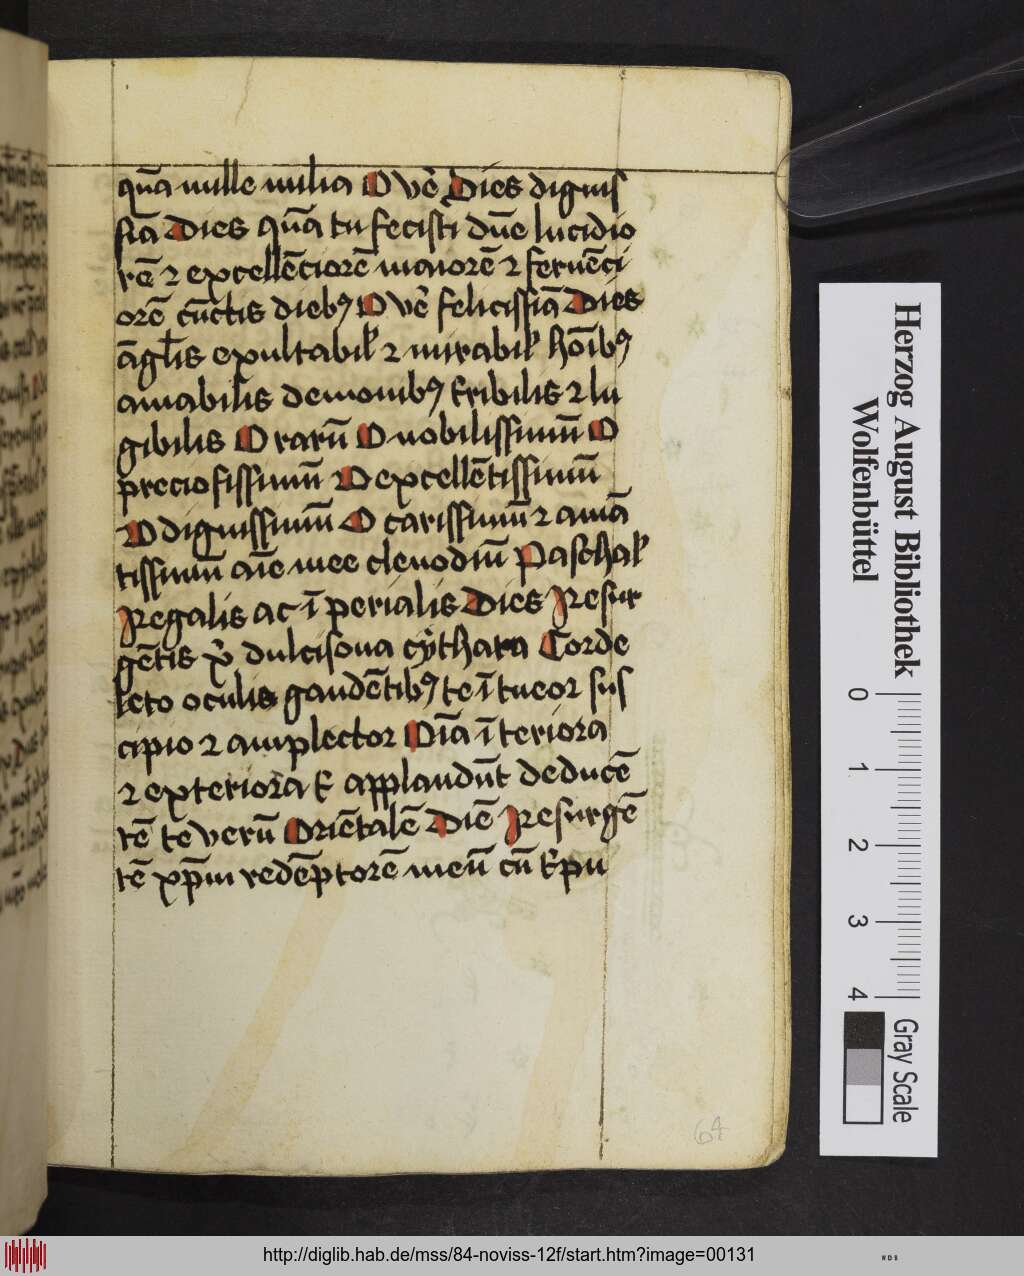 qua̅ mille milia O ve̅ Dies dignis
sia̅ Dies qua̅ tu fecisti dn̅e lucidio
re̅ ⁊ excelle̅ciore̅ maiore̅ ⁊ ferue̅ci
ore̅ cu̅ctis diebꝰ O ve̅ felicissia̅ Dies
a̅gl̅is exultabil̕ ⁊ mirabil̕ ho̅ibꝰ
amabilis demonibꝰ t̕ribilis ⁊ lu
gibilis O raru̅ O nobilissimu̅ O
preciosissimu̅ O excelle̅tissimu̅
O dignissimu̅ O carissimu̅ ⁊ ama̅
tissimu̅ ai̅e mee clenodiu̅ Paschal̕
Regalis ac i̅ perialis Dies Resur
ge̅tis xp̅i dulcisona cythara Corde
leto oculis gaude̅tibꝰ te i̅ tueor sus
cipio ⁊ amplector Oi̅a i̅ teriora
⁊ exteriora t̕ applaudu̅t deduce̅
te̅ te veru̅ Orie̅tale̅ Die̅ Resurge̅
te̅ xp̅m rede̅ptore̅ meu̅ cu̅ t̕pu
64
Herzog August Bibliothek
Wolfenbüttel
0 1 2 3 4
Gray Scale
http://diglib.hab.de/mss/84-noviss-12f/start.htm?image=00131